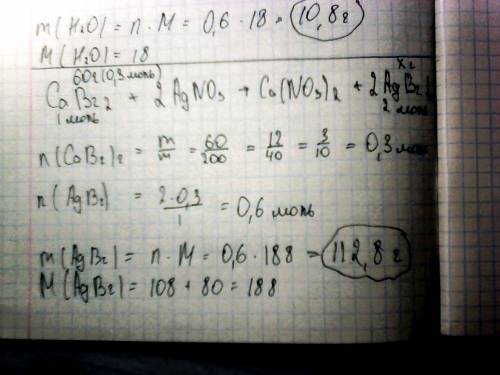 m(H₂O) = n · M = 0,6 · 18 = 10,8 г
M(H₂O) = 18
60г (0,3 моль) x г
CaBr₂ + 2AgNO₃ → Ca(NO₃)₂ + 2AgBr↓
1 моль 2 моль
n(CaBr)₂ = m/m = 60/200 = 12/40 = 3/10 = 0,3 моль
n(AgBr) = 2·0,3/1 = 0,6 моль
m(AgBr) = n · M = 0,6 · 188 = 112,8 г
M(AgBr) = 108 + 80 = 188